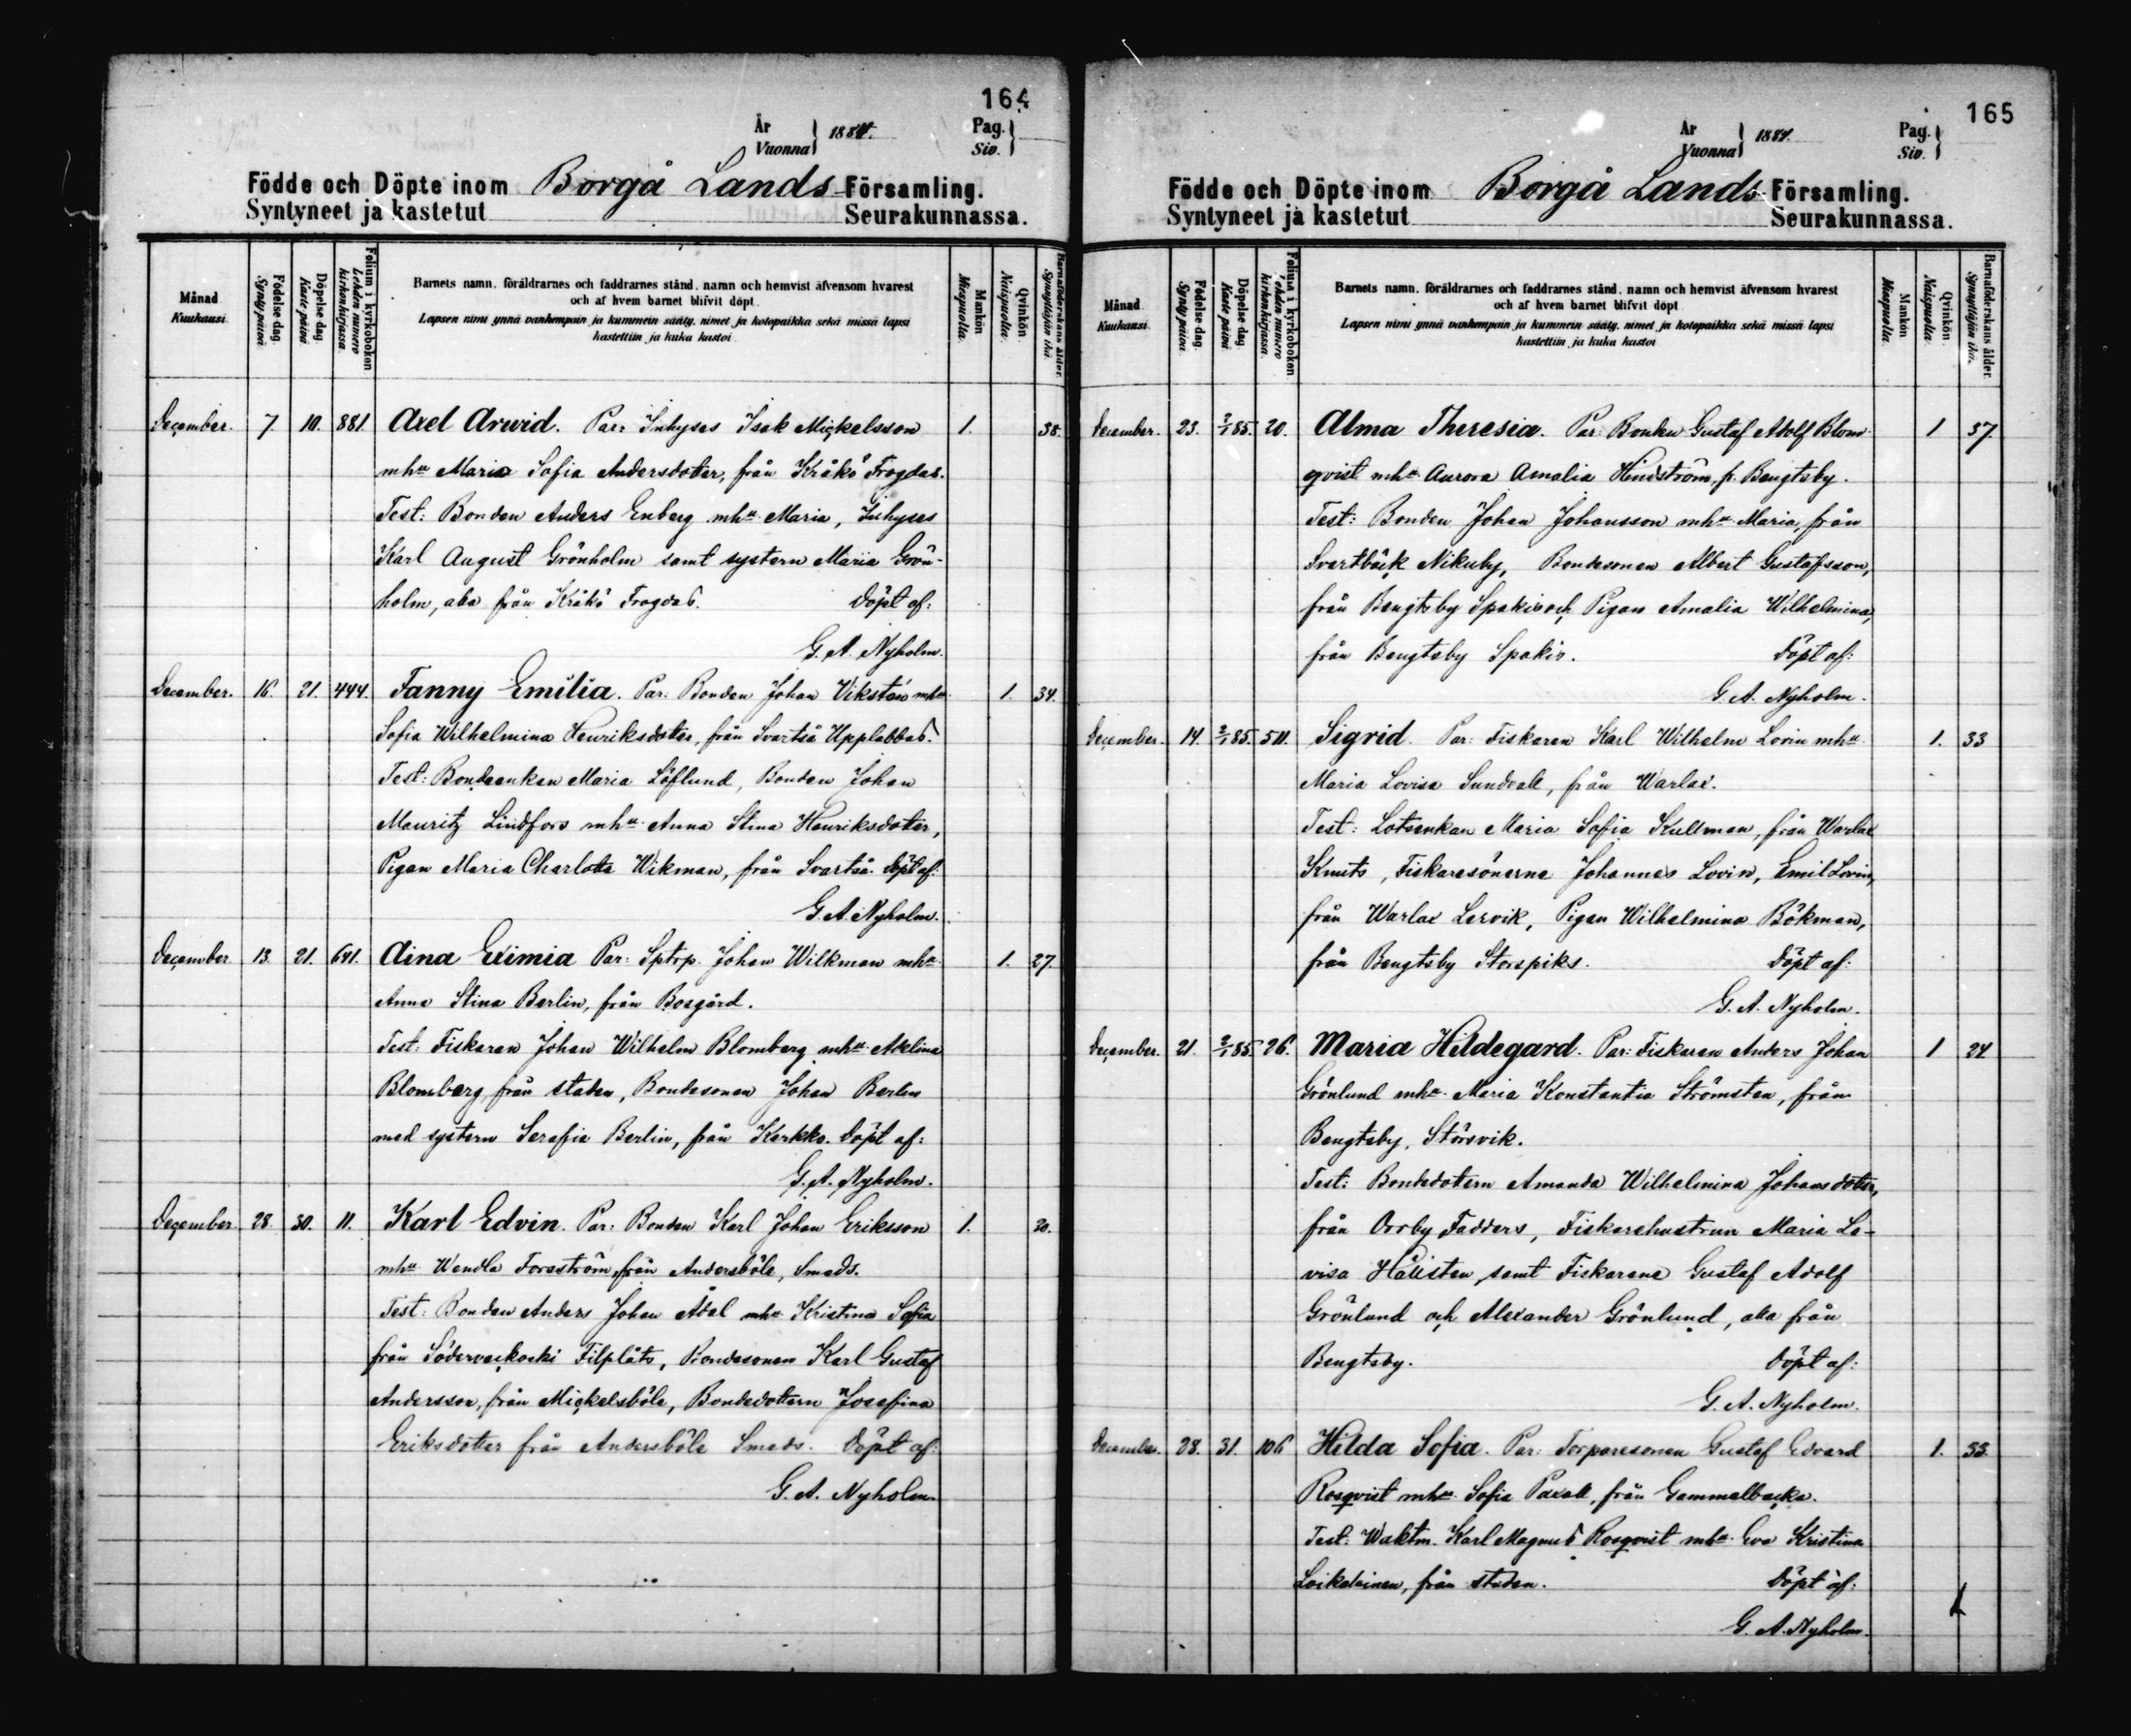 164
År
Vuonna } 1884.
Pag.
Siv.
Födde och Döpte inom Borgå Lands Församling.
Syntyneet ja kastetut Seurakunnassa.
Månad
Kuukausi
Födelse dag.
Synty päivä
Döpelse dag.
Kaste päivä.
Folium i kyrkoboken
Lehden numero kirkonkirjassa.
Barnets namn, föräldrarnes och faddrarnes stånd, namn och hemvist äfvensom hvarest
och af hvem barnet blifvit döpt.
Lapsen nimi ynnä vanhempain ja kummein sääty, nimet ja kotopaikka sekä missä lapsi
kastettiin ja kuka kastoi
Mankön
Miespuolta.
Qvinkön.
Naispuolta.
Barnaföderskans ålder.
Synnyttäjän ikä.
December. 7. 10. 881. Axel Arwid. Par: Inhyses Isak Mickelsson 1. 38.
mhu Maria Sofia Andersdotter, från Kråkö Frogdas.
Test: Bonden Anders Enberg mhu Maria, Inhyses
Karl August Grönholm samt systern Maria Grön-
holm, alla från Kråkö Frogdas. Döpt af:
G. A. Nyholm.
December. 16. 21. 444. Fanny Emilia. Par: Bonden Johan Vikstén mhu 1. 34.
Sofia Wilhelmina Henriksdotter, från Svartså Upplabbas.
Test: Bondeenkan Maria Löflund, Bonden Johan
Mauritz Lindfors mhu Anna Stina Henriksdotter,
Pigan Maria Charlotta Wikman, från Svartså. Döpt af:
G. A. Nyholm.
December 13. 21. 641. Aina Eximia Par: Sptrp. Johan Wilkman mhu 1. 27.
Anna Stina Berlin, från Bosgård.
Test: Fiskaren Johan Wilhelm Blomberg mhu Adelina
Blomberg, från staden, Bondesonen Johan Berlin
med systern Serafia Berlin, från Kerkko. Döpt af:
G. A. Nyholm.
December 28. 30. 11. Karl Edvin. Par: Bonden Karl Johan Eriksson 1. 20.
mhu Wendla Forsström, från Andersböle, Smeds.
Test: Bonden Anders Johan Ådal mhu Kristina Sofia
från Söderveckoski Filpläts, Bondesonen Karl Gustaf
Andersson, från Mickelsböle, Bondedottern Josefina
Eriksdotter från Andersböle Smeds. Döpt af:
G. A. Nyholm.
165
År
Vuonna } 1884.
Pag.
Siv.
Födde och Döpte inom Borgå Lands Församling.
Syntyneet ja kastetut Seurakunnassa.
Månad
Kuukausi
Födelse dag.
Synty päivä
Döpelse dag
Kaste päivä
Folium i kyrkoboken
Lehden numero kirkonkirjassa.
Barnets namn, föräldrarnes och faddrarnes stånd, namn och hemvist äfvensom hvarest
och af hvem barnet blifvit döpt
Lapsen nimi ynnä vanhempain ja kummein sääty, nimet ja kotopaikka sekä missä lapsi
kastettiin ja kuka kastoi
Mankön
Miespuolta.
Qvinkön.
Naispuolta.
Barnaföderskans ålder.
Synnyttäjän ikä.
December. 23. 2/1 85. 20. Alma Theresia. Par: Bonden Gustaf Adolf Blom- 1 37.
qvist mhu Aurora Amalia Hindström, fr. Bengtsby.
Test: Bonden Johan Johansson mhu Maria, från
Svartbäck Nikuby, Bondesonen Albert Gustafsson,
från Bengtsby Spakis och Pigan Amalia Wilhelmina,
från Bengtsby Spakis. Döpt af:
G. A. Nyholm.
December. 14. 2/1 85. 511. Sigrid. Par: Fiskaren Karl Wilhelm Lovin mhu 1. 33
Maria Lovisa Sundvall, från Warlax.
Test: Lotsenkan Maria Sofia Kullman, från Warlax
Knuts, Fiskaresönerne Johannes Lovin, Emil Lovin,
från Warlax Lervik, Pigan Wilhelmina Bökman,
från Bengtsby Storspiks. Döpt af:
G. A. Nyholm.
December. 21. 2/1 85. 26. Maria Hildegard. Par: Fiskaren Anders Johan 1 24.
Grönlund mhu Maria Konstantia Strömsten, från
Bengtsby, Storsvik.
Test: Bondedottern Amanda Wilhelmina Johansdotter,
från Orrby Fadders, Fiskarehustrun Maria Lo-
visa Hällsten, samt Fiskarena Gustaf Adolf
Grönlund och Alexander Grönlund, alla från
Bengtsby. Döpt af:
G. A. Nyholm.
December. 28. 31. 106 Hilda Sofia. Par: Torparesonen Gustaf Edvard 1. 33.
Rosqvist mhu Sofia Paxall, från Gammelbacka.
Test: Waktm. Karl Magnus Rosqvist mhu Eva Kristina
Loikalainen, från staden. Döpt af:
G. A. Nyholm.